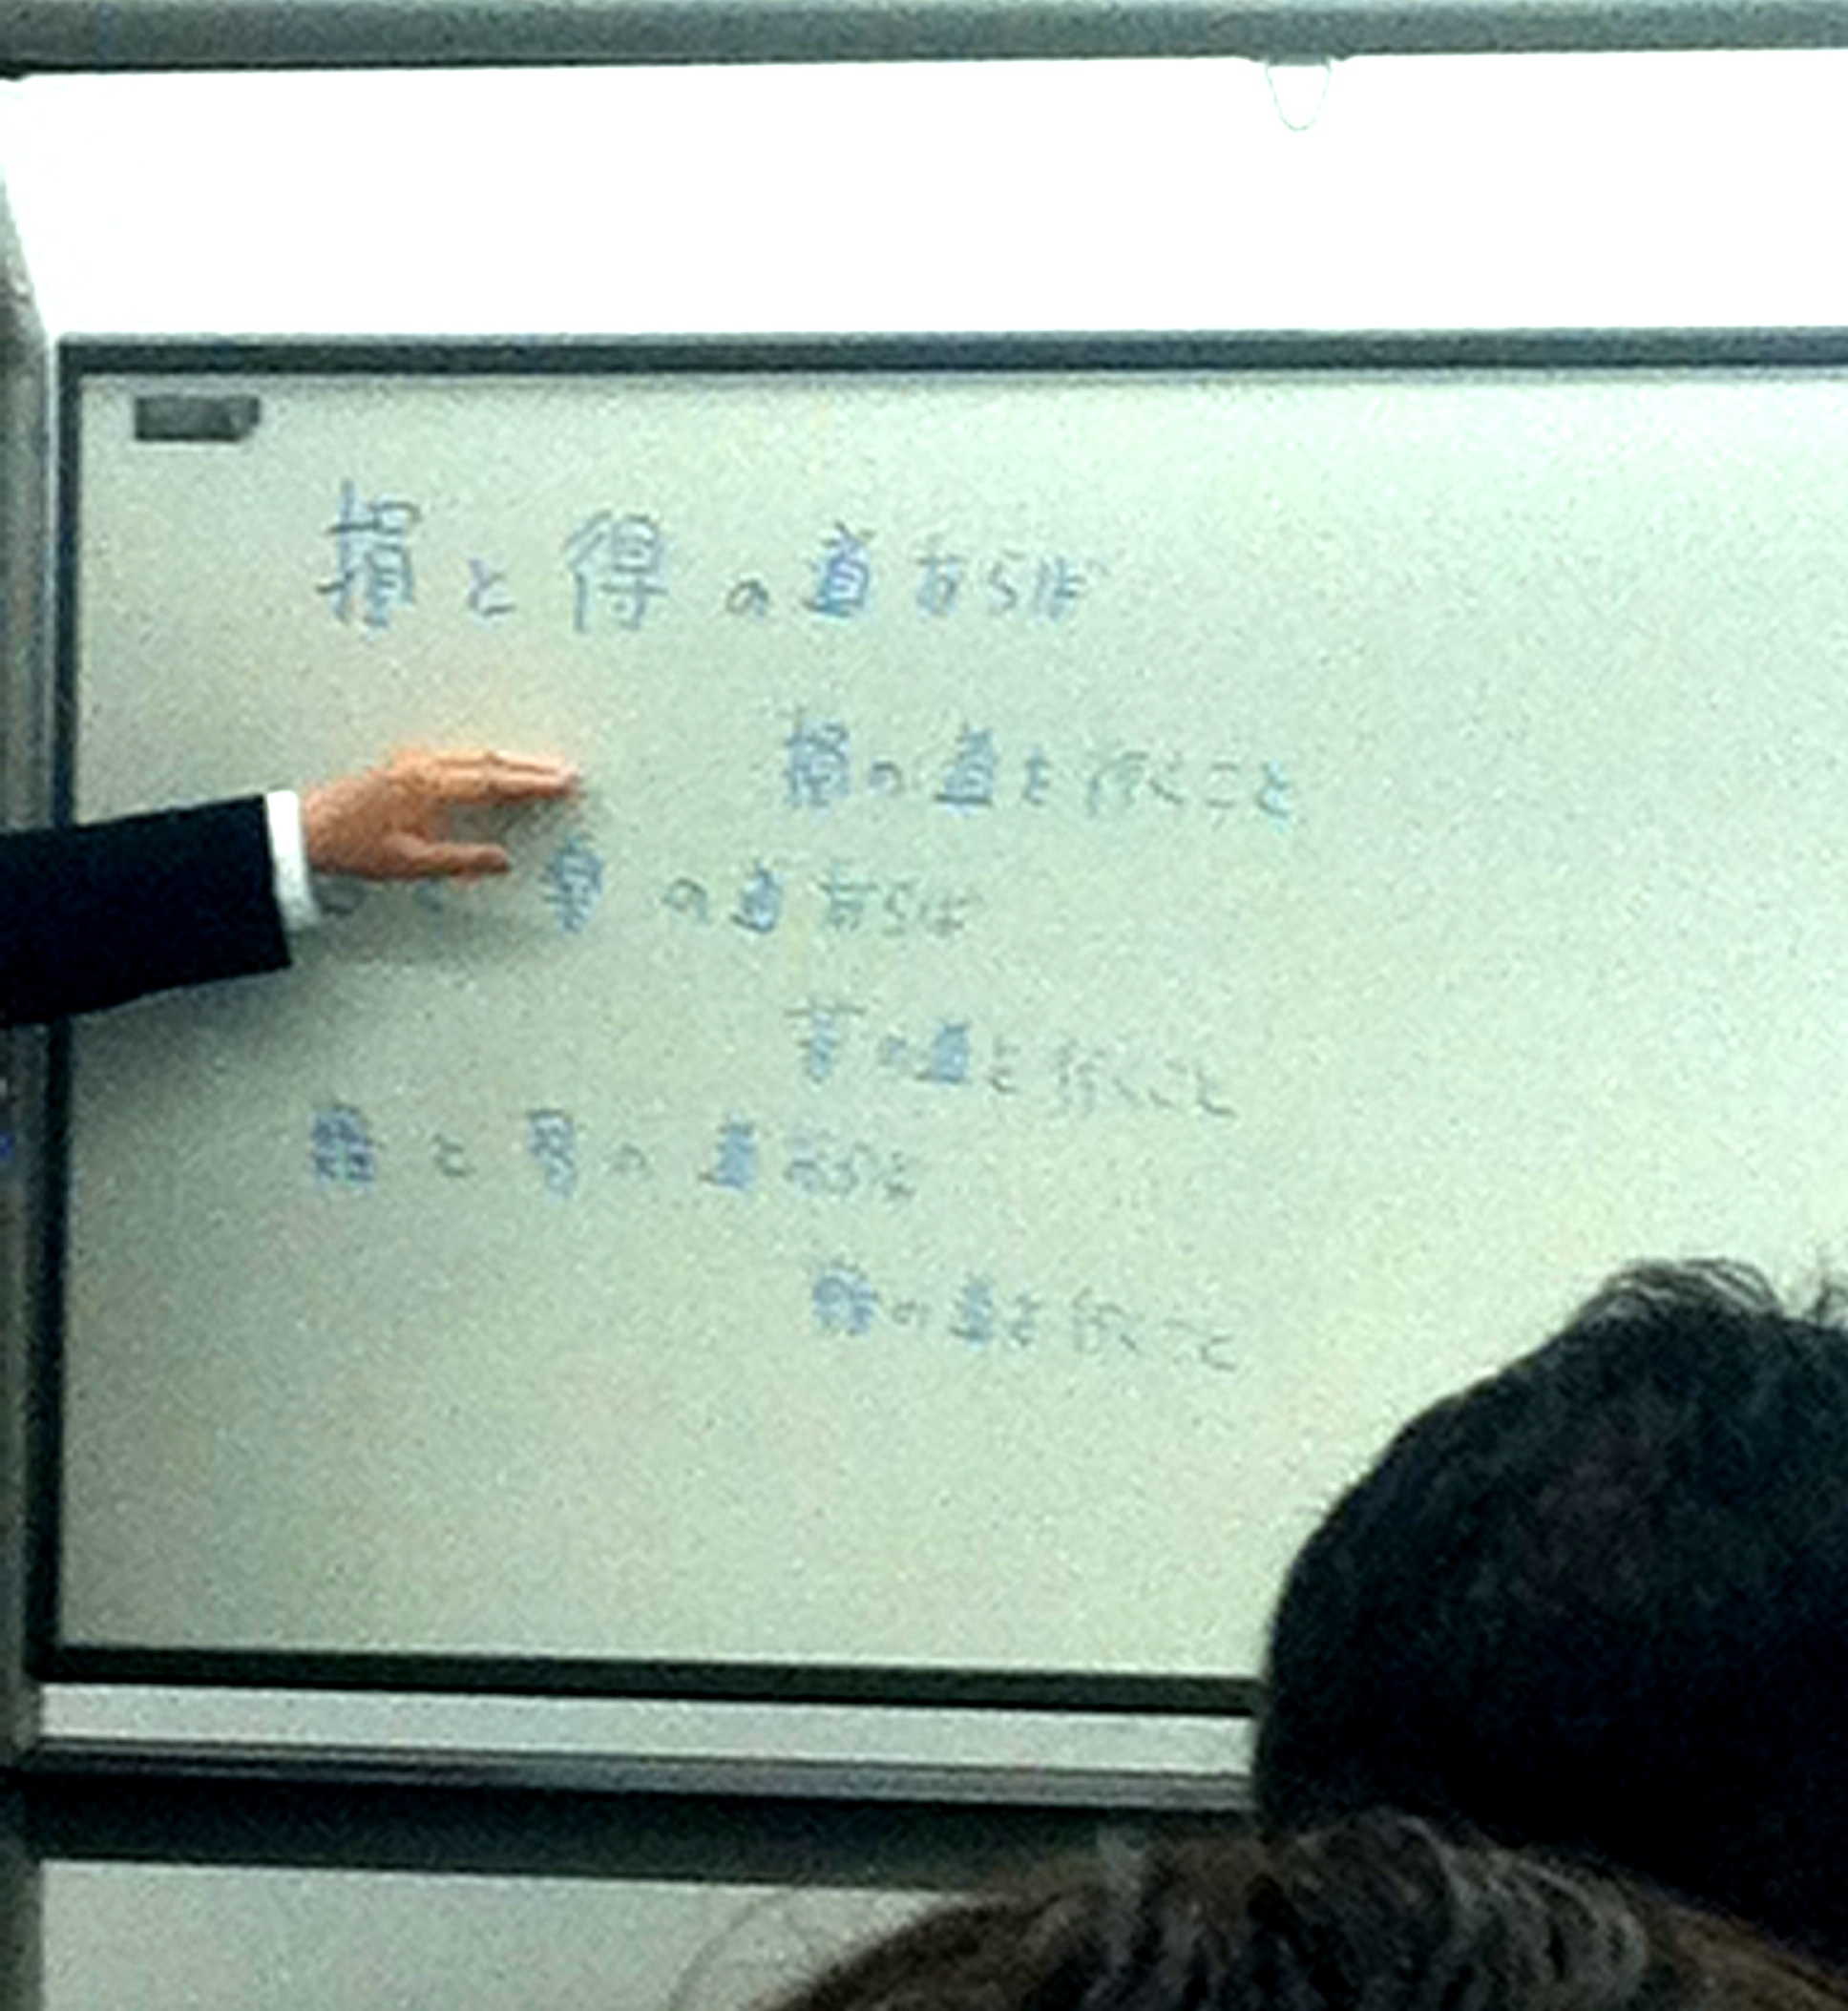 損と得の道あらば
損の道を行くこと
の道あらば
の道を行くこと
と の道あらば
の道を行くこと